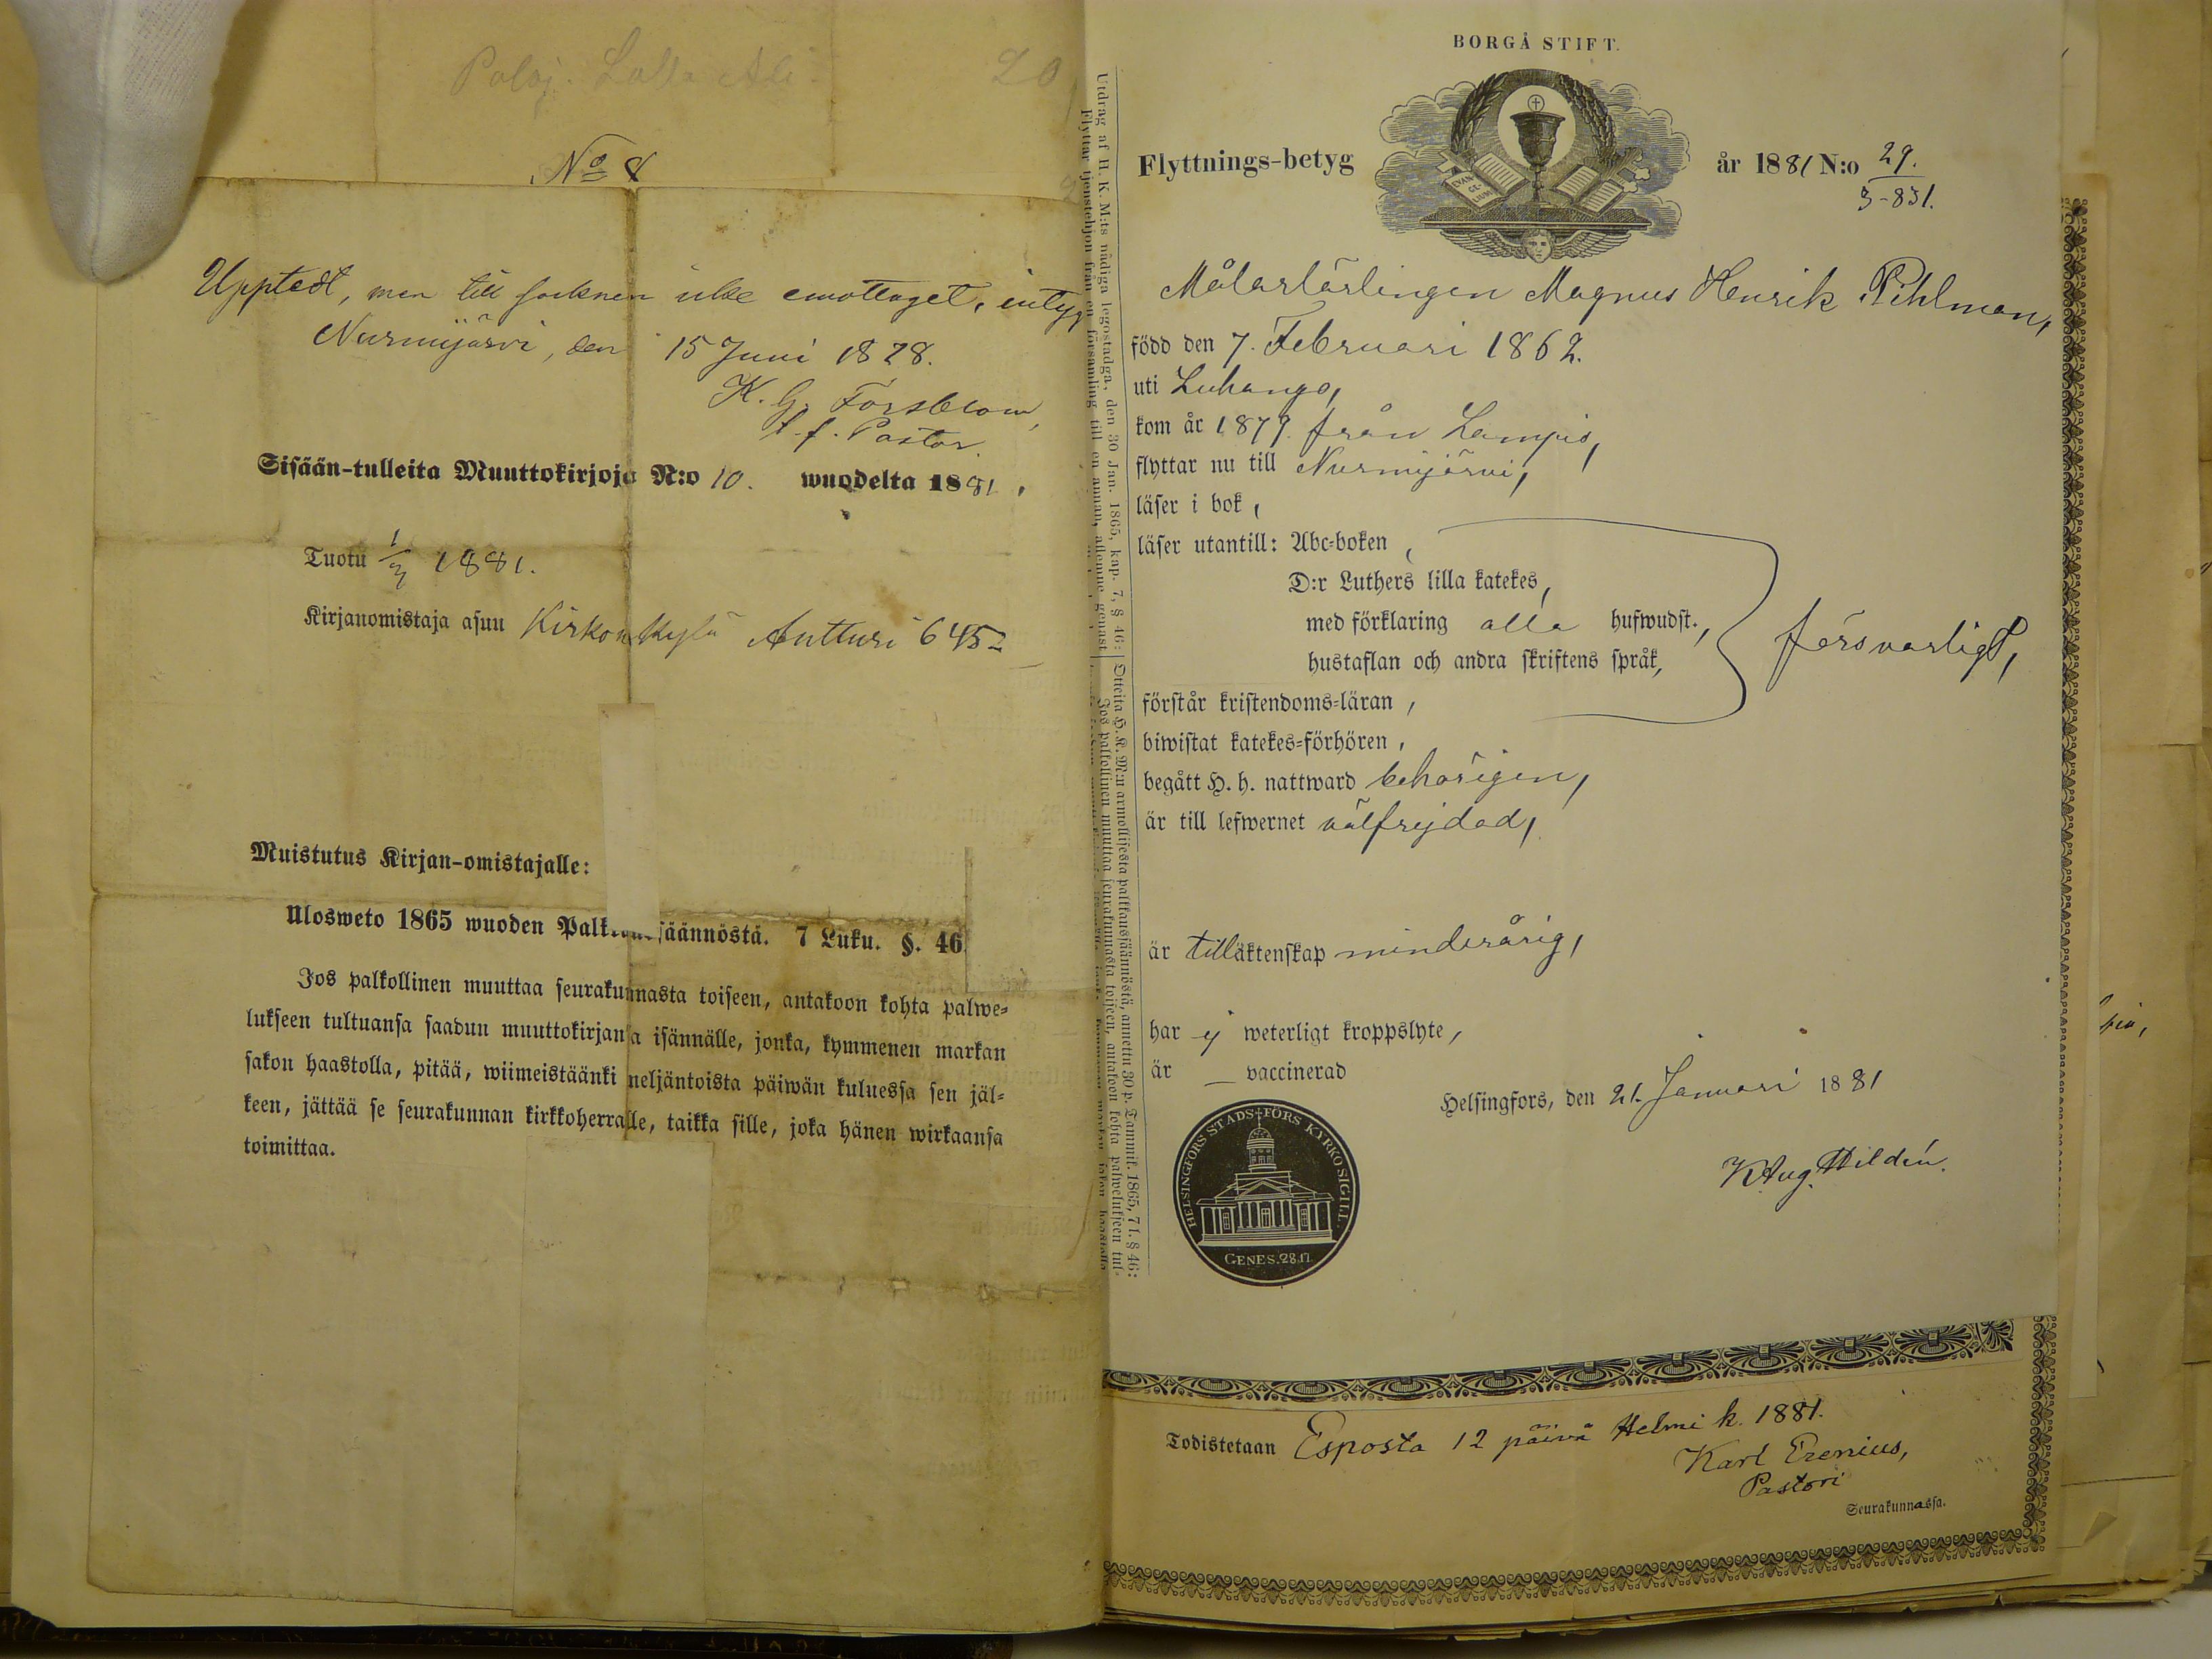 Paloj. Lalla Ali
20
No 8
Upptedt, men till socknen icke emottaget, intyg
Nurmijärvi, den 15 Juni 1878.
K. G. Forsblom,
t. f. Pastor.
Sisään-tulleita Muuttokirjoja N:o 10. wuodelta 1881.
Tuotu 1/3 1881.
Kirjanomistaja asuu Kirkonkylä Antturi 645
Muistutus Kirjan-omistajalle:
Ulosweto 1865 wuoden säännöstä. 7 Luku. §. 46
Jos palkollinen muuttaa seurakunnasta toiseen, antakoon kohta palwe-
lukseen tultuansa saadun muuttokirjansa isännälle, jonka, kymmenen markan
sakon haastolla, pitää, wiimeistäänki neljäntoista päiwän kuluessa sen jäl-
keen, jättää se seurakunnan kirkkoherralle, taikka sille, joka hänen wirkaansa
toimittaa.
Utdrag af H. K. M:ts nådiga legostadga, den 30 Jan. 1865, kap. 7, § 46:
Flyttar tjenstehjon från en församling till en annan, aflemne genast
Otteita H. K. M:n armollisesta palkkaussäännöstä, annettu 30 p. Tammik. 1865, 7 l. § 46:
Jos palkollinen muuttaa seurakunnasta toiseen, antakoon kohta palwelukseen tul-
BORGÅ STIFT.
EVAN-
GE-
LIUM
Flyttnings-betyg år 1881 N:o 29.
3-831.
Målarlärlingen Magnus Henrik Pihlman,
född den 7. Februari 1862.
uti Luhango,
kom år 1879 från Lampis,
flyttar nu till Nurmijärvi,
läser i bok,
läser utantill: Abc-boken,
D:r Luthers lilla katekes,
med förklaring alla hufwudst.,
hustaflan och andra skriftens språk,
försvarligt,
förstår kristendoms-läran,
biwistat katekes-förhören,
begått H. h. nattward behörigen,
är till lefwernet välfrejdad,
är till äktenskap minderårig,
har ej weterligt kroppslyte,
är vaccinerad
Helsingfors, den 21. Januari 1881
K Aug. Hildén.
HELSINGFORS STADS FÖRS KYRKO SIGILL.
GENES. 28.17.
Todistetaan Esposta 12 päivä Helmi k. 1881.
Karl Erenius,
Pastori
Seurakunnassa.